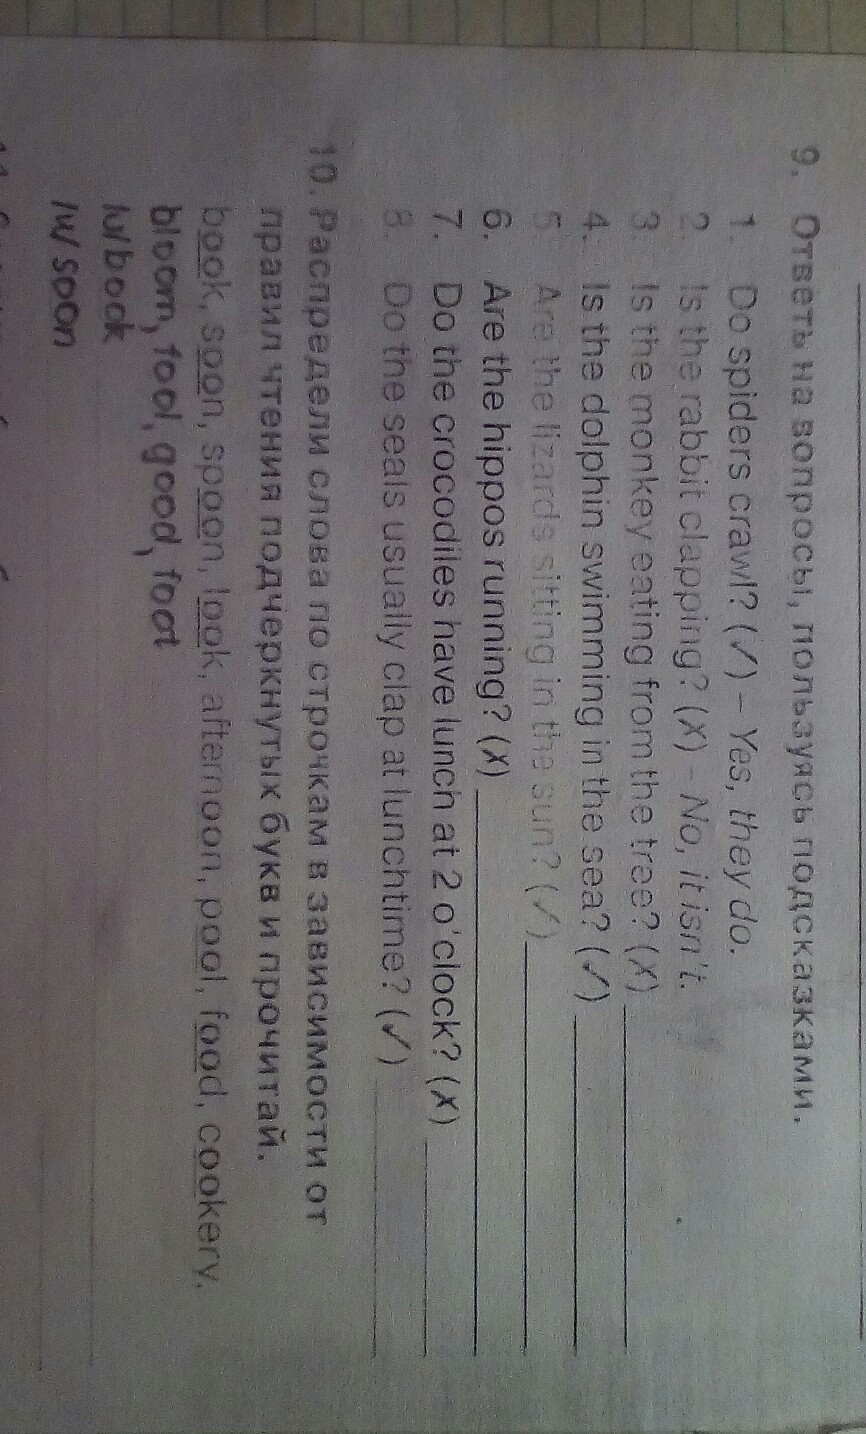 9. Ответь на вопросы, пользуясь подсказками.
1. Do spiders crawl? (✓) – Yes, they do.
2. Is the rabbit clapping? (X) – No, it isn't.
3. Is the monkey eating from the tree? (X)
4. Is the dolphin swimming in the sea? (✓)
5. Are the lizards sitting in the sun? (✓)
6. Are the hippos running? (X)
7. Do the crocodiles have lunch at 2 o'clock? (X)
8. Do the seals usually clap at lunchtime? (✓)
10. Распредели слова по строчкам в зависимости от
правил чтения подчеркнутых букв и прочитай.
book, soon, spoon, look, afternoon, pool, food, cookery,
bloom, fool, good, foot
book
soon